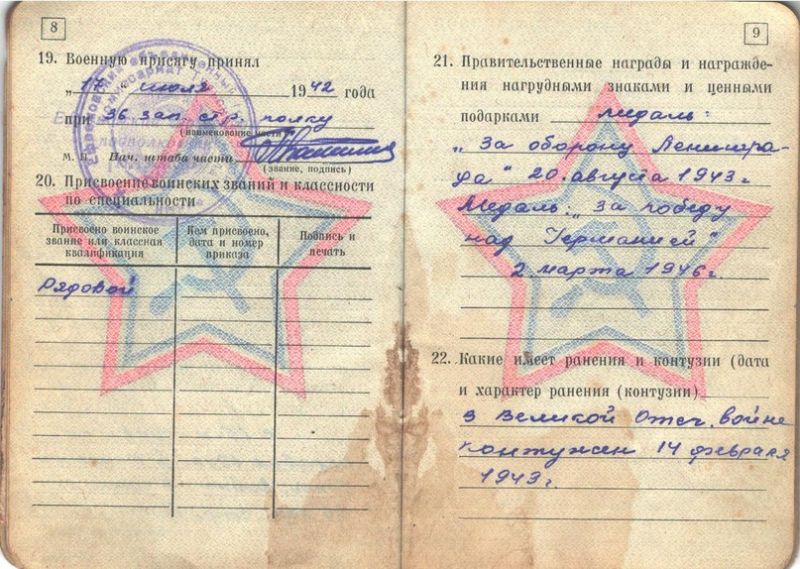 8
19. Военную присягу принял
„ 17 " июля 1942 года
при 36 зап. стр. полку
(наименование части)
М. П. Нач. штаба части
(звание, подпись)
20. Присвоение воинских званий и классности
по специальности
Присвоено воинское
звание или классная
квалификация
Кем присвоено,
дата и номер
приказа
Подпись и
печать
Рядовой
9
21. Правительственные награды и награжде-
ния нагрудными знаками и ценными
подарками медаль:
„За оборону Ленингра-
да" 20. августа 1943 г
Медаль: „за победу
над Германией"
2 марта 1946 г.
22. Какие имеет ранения и контузии (дата
и характер ранения (контузии)
В Великой Отеч. войне
контужен 14 февраля
1943 г.